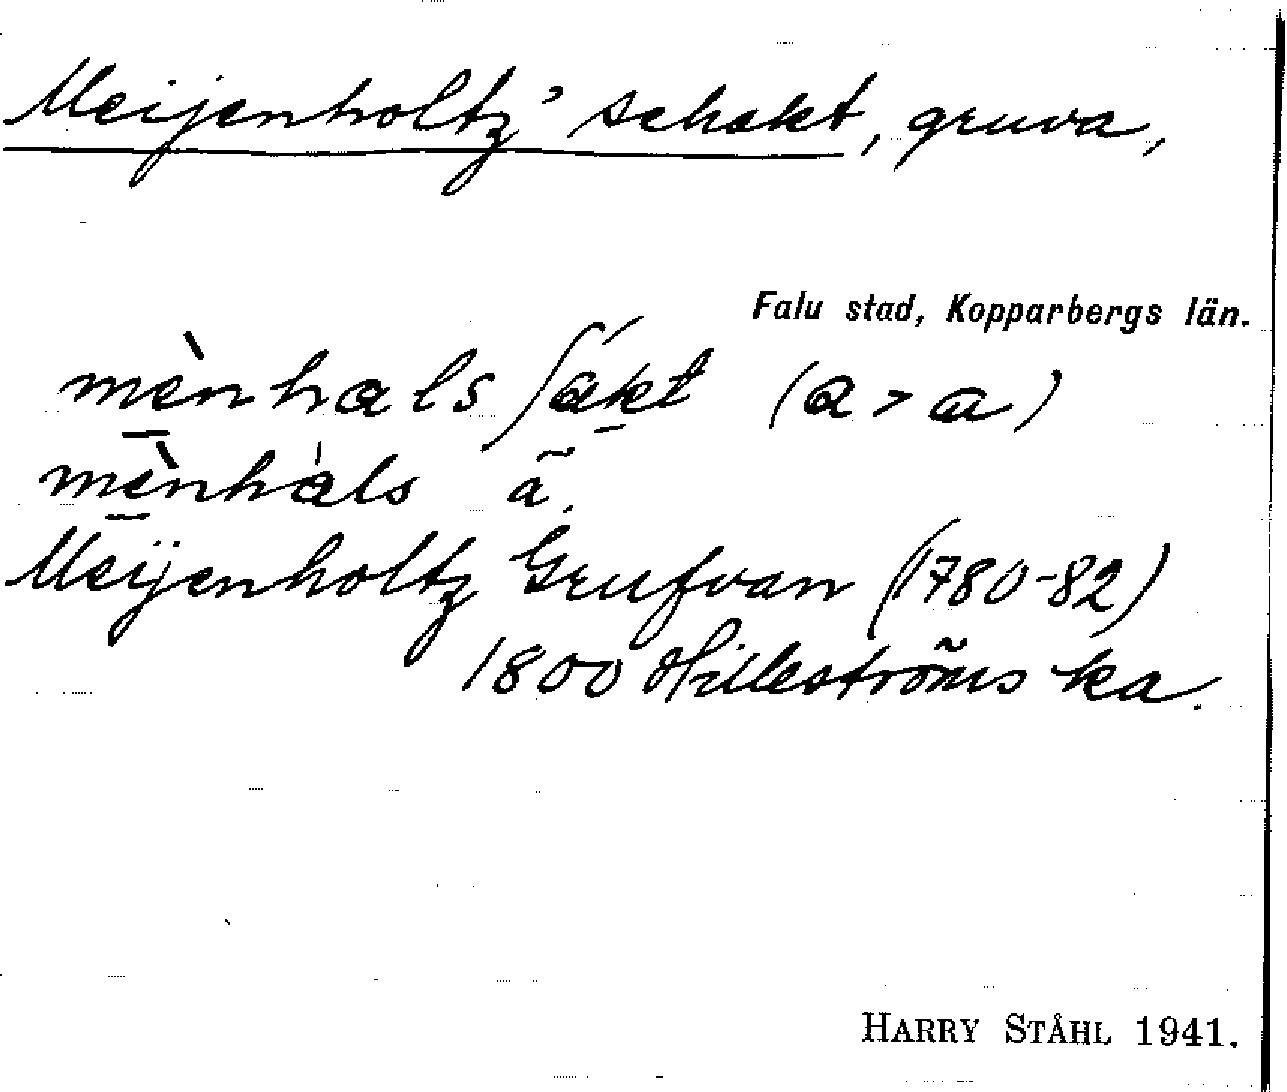 Meijenholtz' schakt, gruva,
Falu stad, Kopparbergs län.
mènhals ʃákt (a > a)
mènhàls ã.
Meijenholtz Grufvan (1780-82)
1800 Hilleströms ka.
HARRY STÅHL 1941.